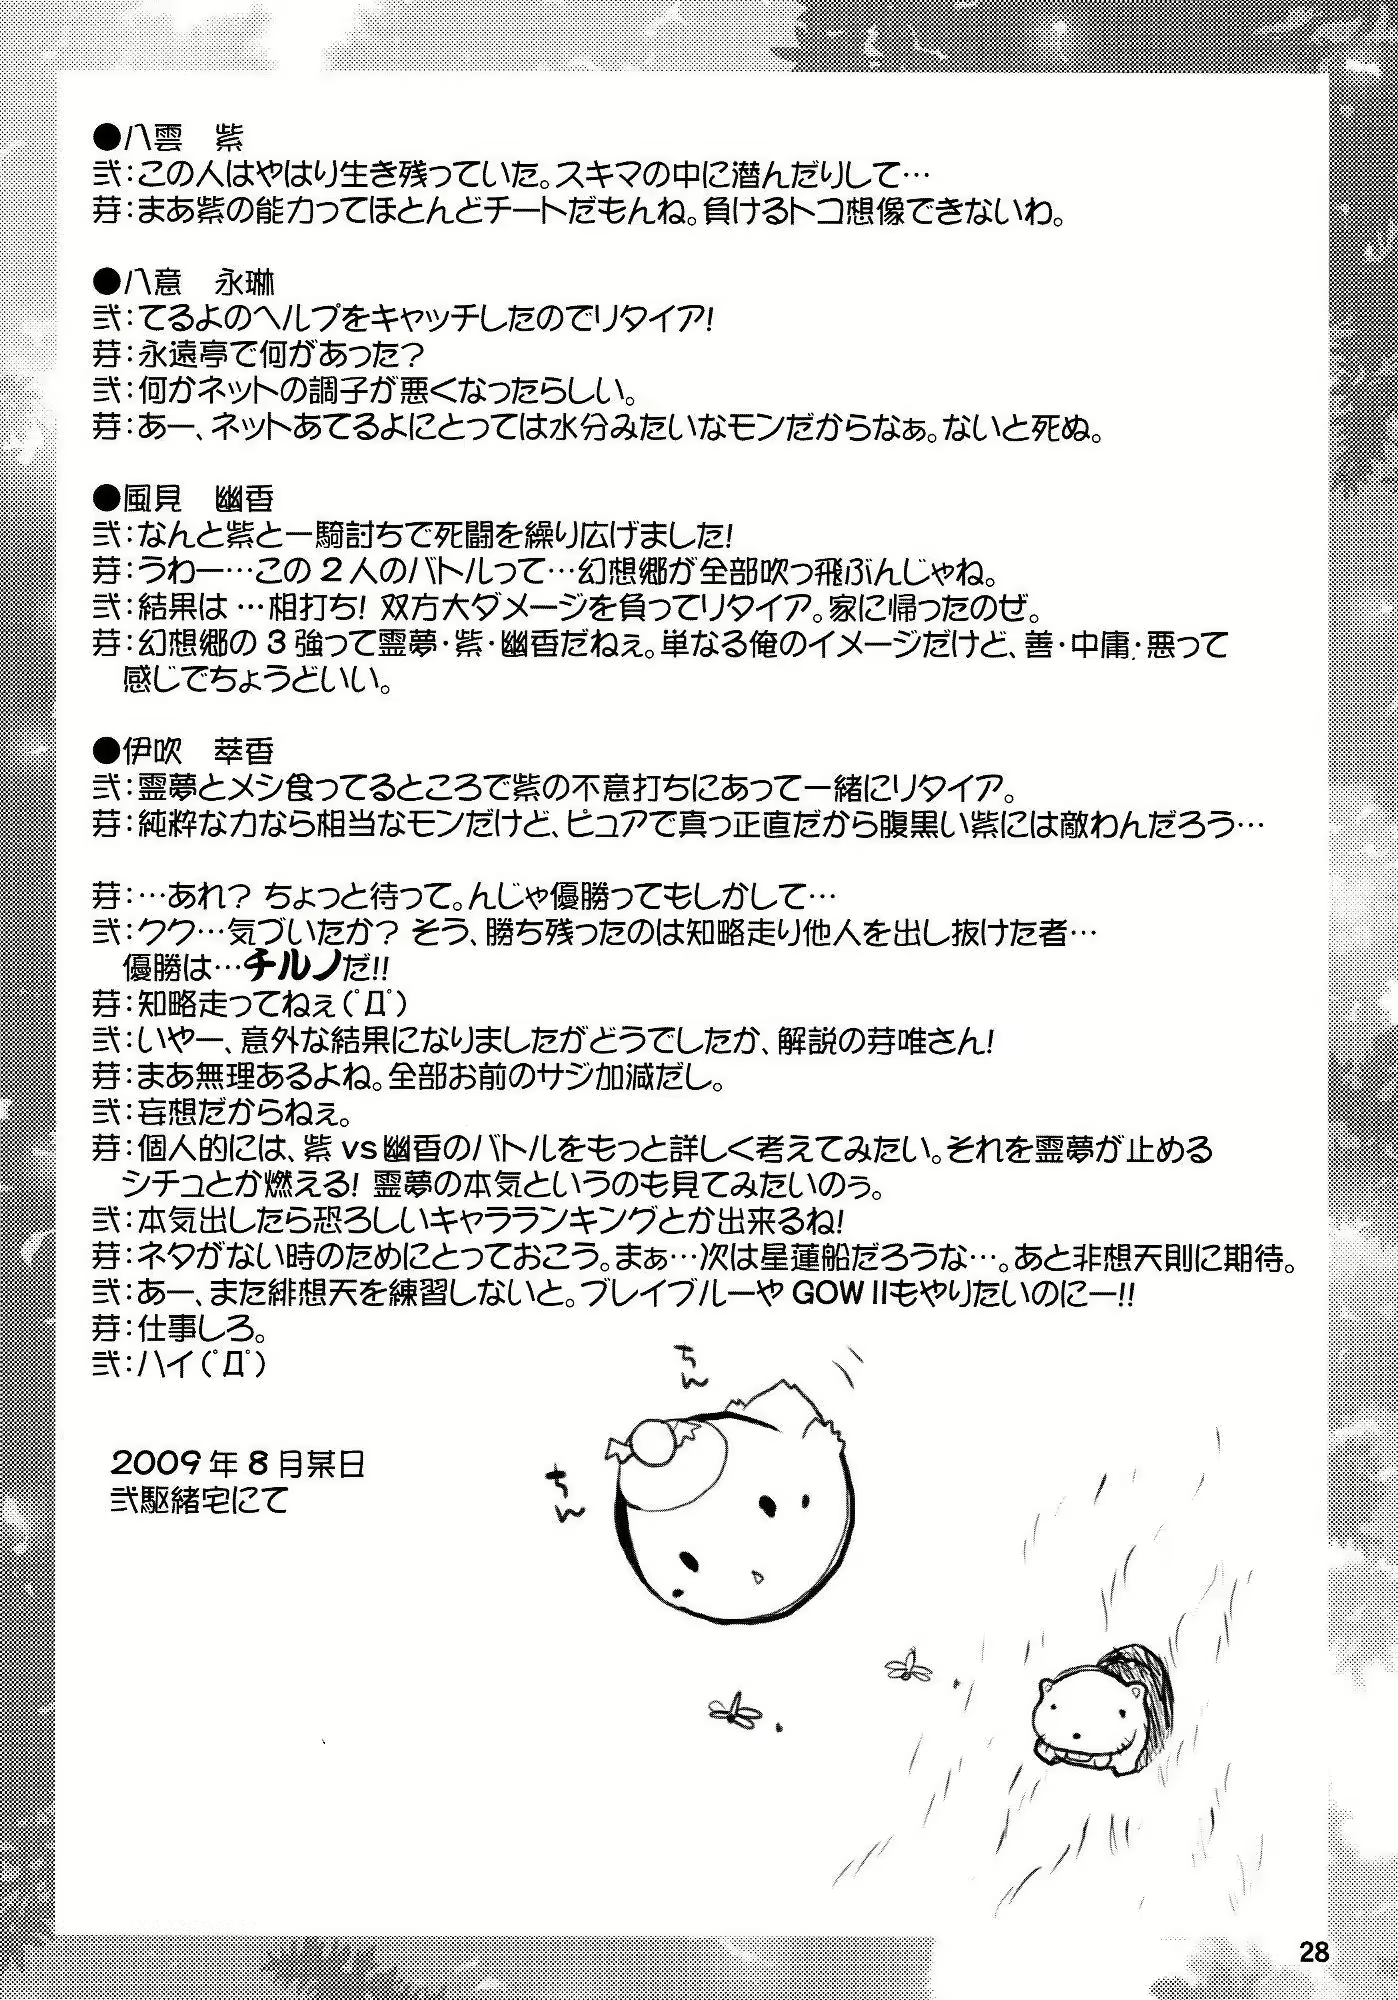 ●八雲　紫
弐：この人はやはり生き残っていた。スキマの中に潜んだりして…
芽：まあ紫の能力ってほとんどチートだもんね。負けるトコ想像できないわ。
●八意　永琳
弐：てるよのヘルプをキャッチしたのでリタイア！
芽：永遠亭で何があった？
弐：何かネットの調子が悪くなったらしい。
芽：あー、ネットあてるよにとっては水分みたいなモンだからなぁ。ないと死ぬ。
●風見　幽香
弐：なんと紫と一騎討ちで死闘を繰り広げました！
芽：うわー…この2人のバトルって…幻想郷が全部吹っ飛ぶんじゃね。
弐：結果は…相打ち！ 双方大ダメージを負ってリタイア。家に帰ったのぜ。
芽：幻想郷の3強って霊夢・紫・幽香だねぇ。単なる俺のイメージだけど、善・中庸・悪って
感じでちょうどいい。
●伊吹　萃香
弐：霊夢とメシ食ってるところで紫の不意打ちにあって一緒にリタイア。
芽：純粋な力なら相当なモンだけど、ピュアで真っ正直だから腹黒い紫には敵わんだろう…
芽：…あれ？ ちょっと待って。んじゃ優勝ってもしかして…
弐：クク…気づいたか？ そう、勝ち残ったのは知略走り他人を出し抜けた者…
優勝は…チルノだ!!
芽：知略走ってねぇ(ﾟДﾟ)
弐：いやー、意外な結果になりましたがどうでしたか、解説の芽唯さん！
芽：まあ無理あるよね。全部お前のサジ加減だし。
弐：妄想だからねぇ。
芽：個人的には、紫vs幽香のバトルをもっと詳しく考えてみたい。それを霊夢が止める
シチュとか燃える！ 霊夢の本気というのも見てみたいのぅ。
弐：本気出したら恐ろしいキャラランキングとか出来るね！
芽：ネタがない時のためにとっておこう。まぁ…次は星蓮船だろうな…。あと非想天則に期待。
弐：あー、また緋想天を練習しないと。ブレイブルーやGOWⅡもやりたいのにー!!
芽：仕事しろ。
弐：ハイ(ﾟДﾟ)
2009年8月某日
弐駆緒宅にて
ちん
ちん
28